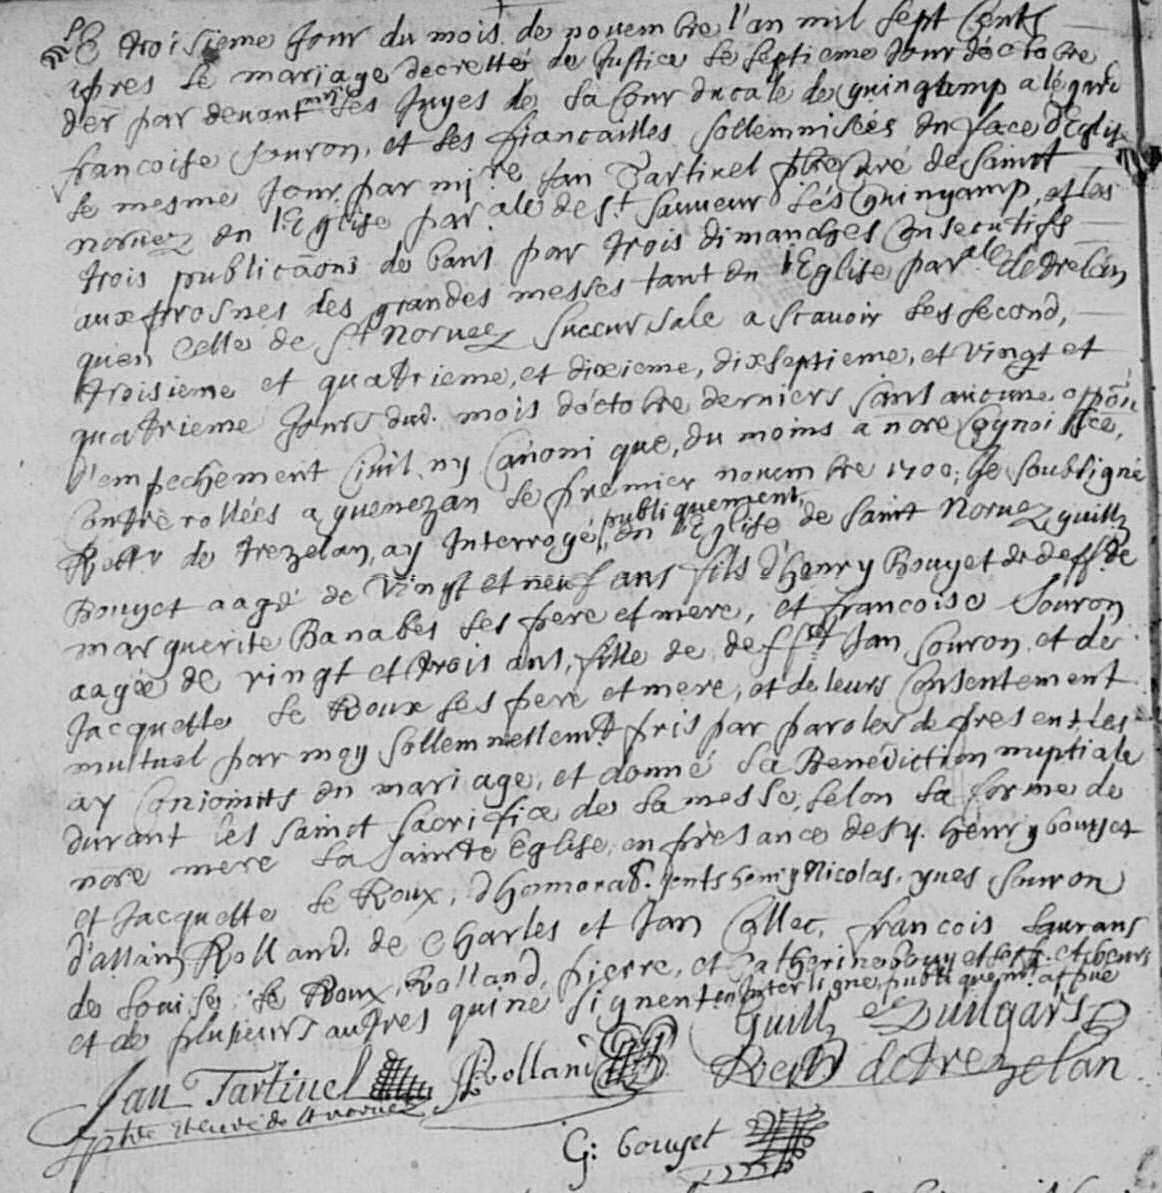 Le troisieme jour du mois de novembre l'an mil sept cents
apres le mariage decretté de justice le septieme jour d'octobre
der par devant mrs les juges de la cour ducale de guingamp a l'égard
francoise souron, et les fiancailles sollemnisées en face d'Eglise
le mesme jour par mire Jan Tartivel pbre curé de saint
norvez en l'Eglise par.ale de st sauveur lés Guingamp, et les
trois publicãons de bans par trois dimanches consecutifs
aux prosnes des grandes messes tant en l'Eglise par.ale de trezelan
qu'en celle de st Norvez succursale a scavoir les second,
troisieme et quatrieme, et dixieme, dixseptieme, et vingt et
quatrieme jours dud. mois d'octobre derniers sans aucune oppõn
n'empechement civil ny canonique, du moins a nore cognoissce,
controllées a guenezan le premier novembre 1700; je soubsigné
Rectr de trezelan, ay interrogé, publiquement, en l'Eglise de saint Norvez guill
Bouget aagé de vingt et neuf ans fils d'henry Bouget et de deffte
marguerite Banabes ses pere et mere, et francoise Souron
aagée de vingt et trois ans, fille de deffct Jan souron et de
Jacquette le Roux ses pere et mere, et de leurs consentement
mutuel par moy sollemnellemt pris par paroles de present, les
ay conjoints en mariage, et donné la Benediction nuptiale
durant les sainct sacrifice de la messe, selon la forme de
nore mere la sainte Eglise, en presance desd. henry bouget
et Jacquette le Roux, d'honorab. gents henry Nicolas, yves souron
d'allain Rolland, de Charles et Jan Collec, francois Laurans
de Louise le Roux, Rolland, pierre, et Catherine bouget
et de plusieurs autres qui ne signent en interligne, publiquemt approuvé
Guill Dungars
Jan Tartivel
Rolland
Rectr de Trezelan
pbre et curé de st norvez
G: bouget